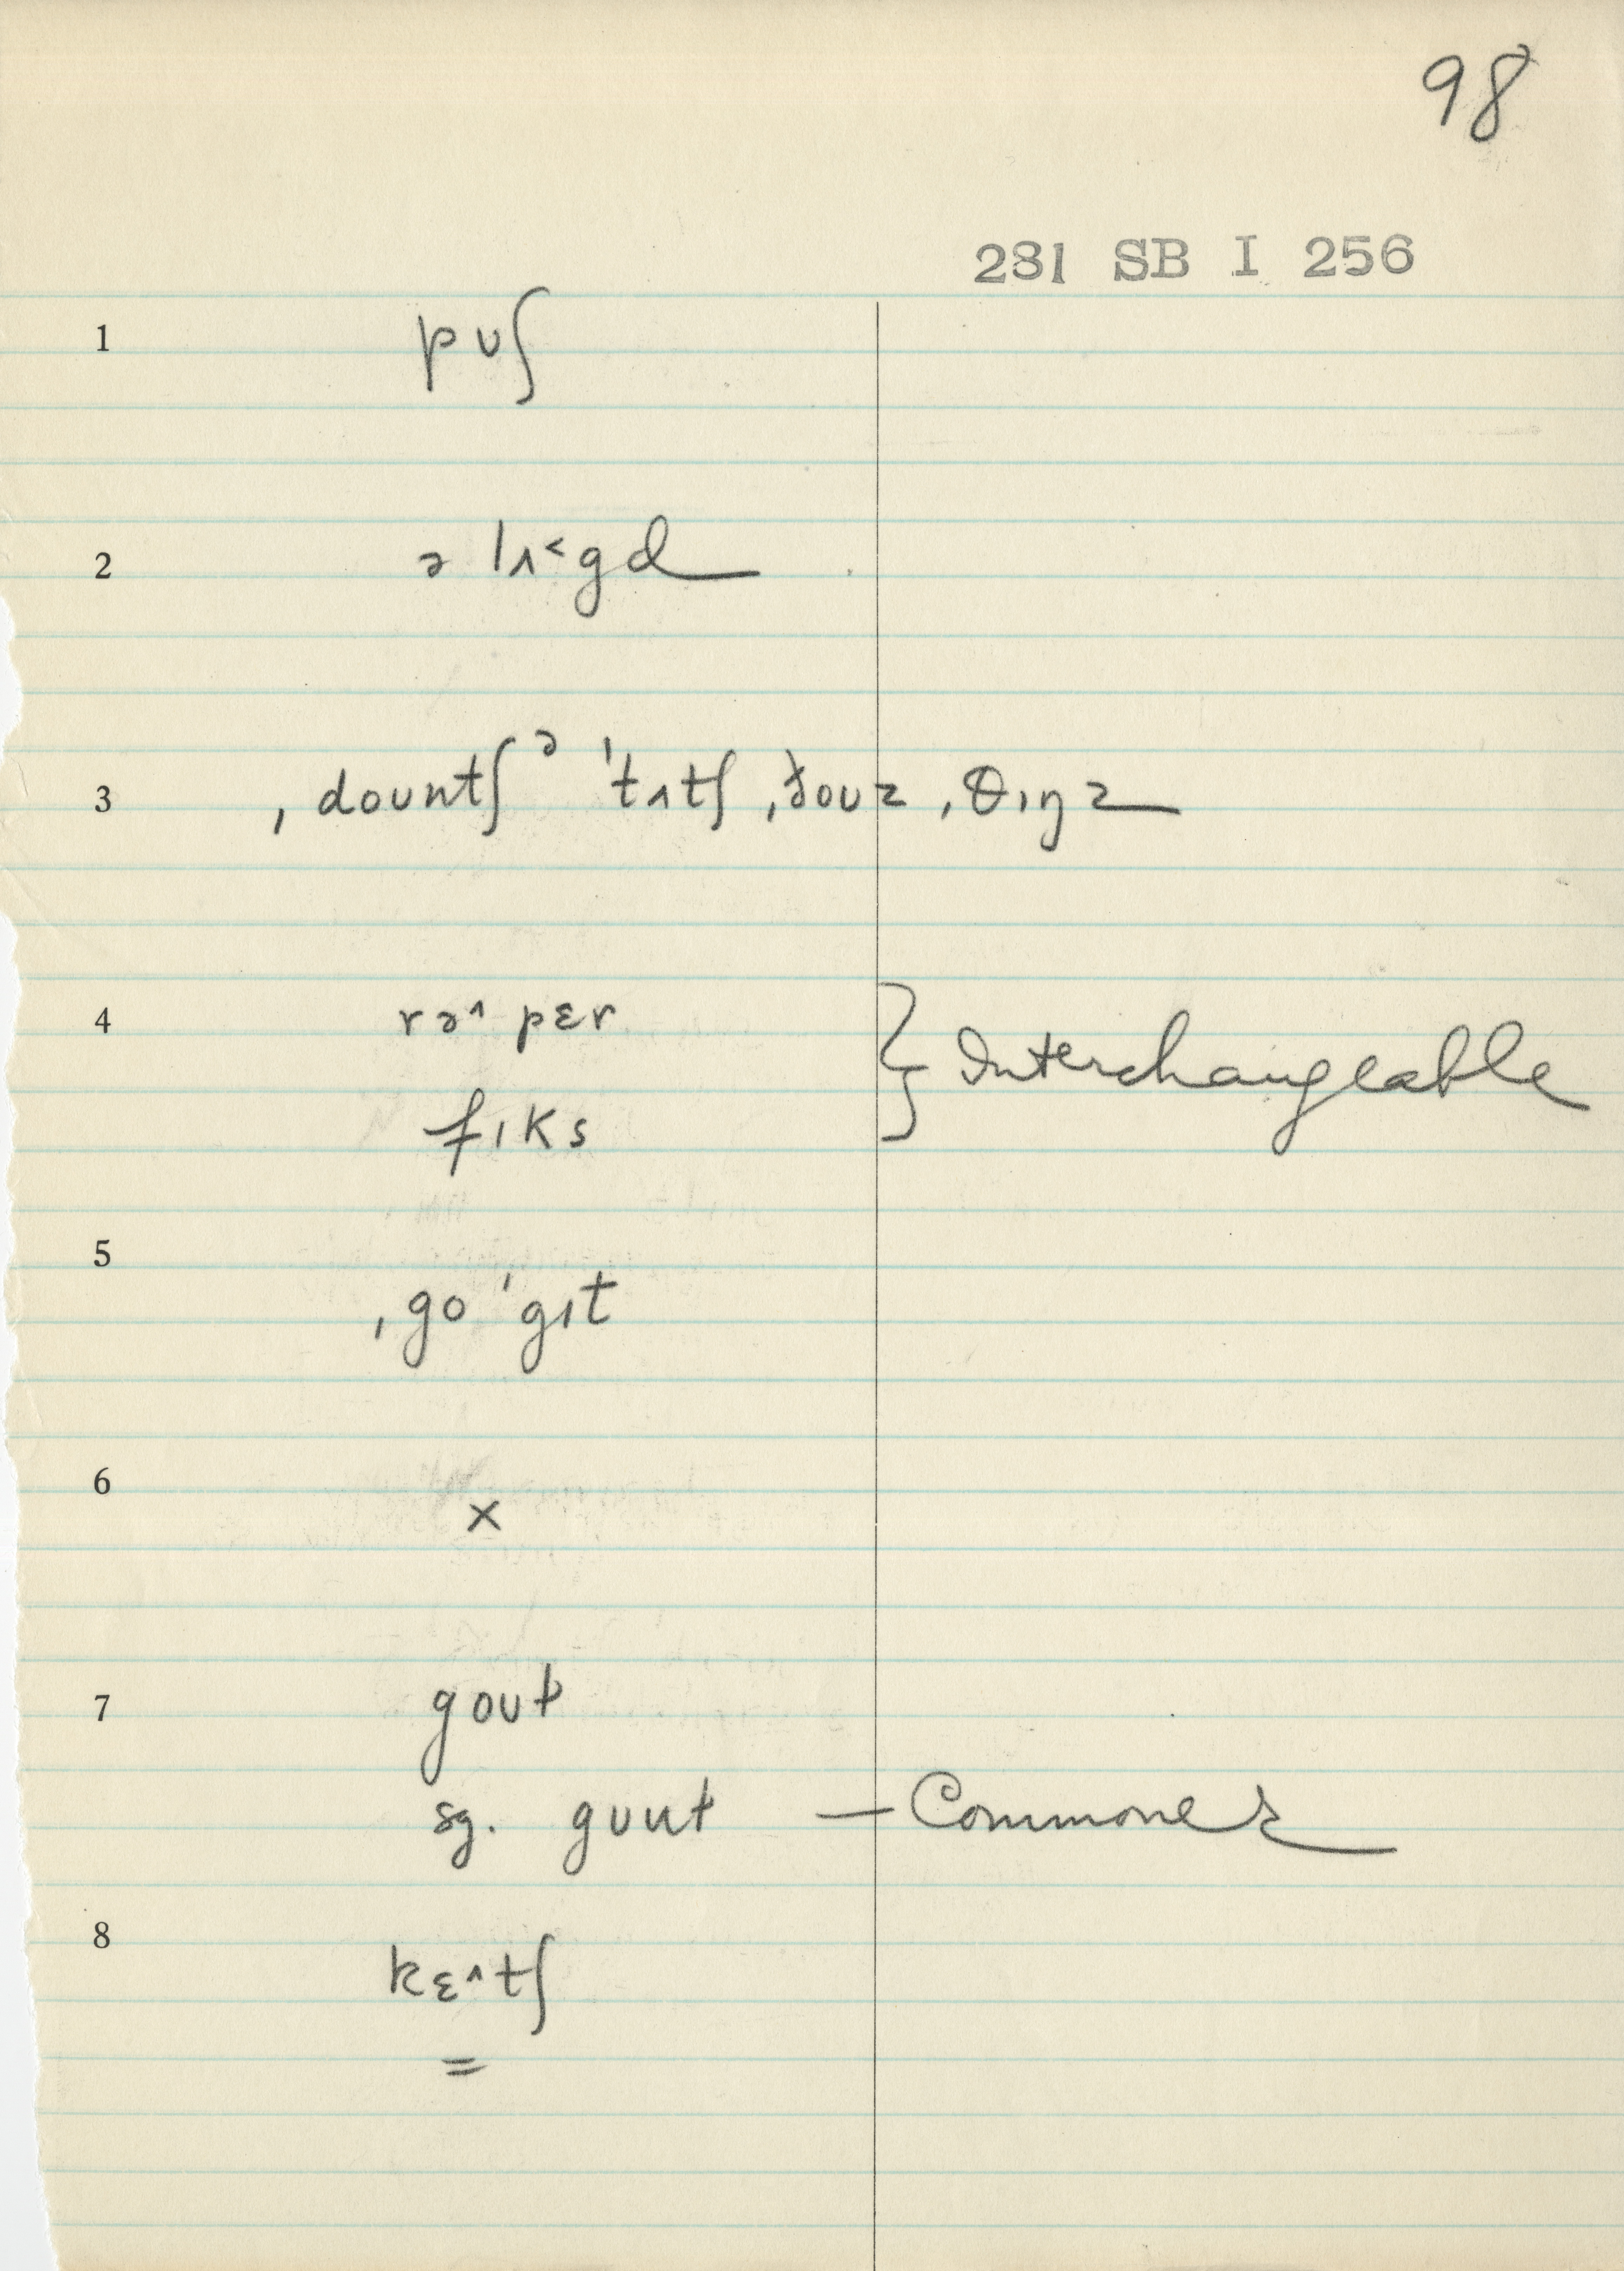 98
281 SB I 256
1 pʊʃ
2 ə lʌ˂gd
3 ˌdoʊntʃ ə ˈtʌtʃ ˌðoʊz ˌθɪŋz
4 rə^ pɛr } Interchangeable
fɪks
5 ˌgo ˈgɪt
6 x
7 goʊt
sg. goʊt — Commoner
8 kɛ^tʃ
=